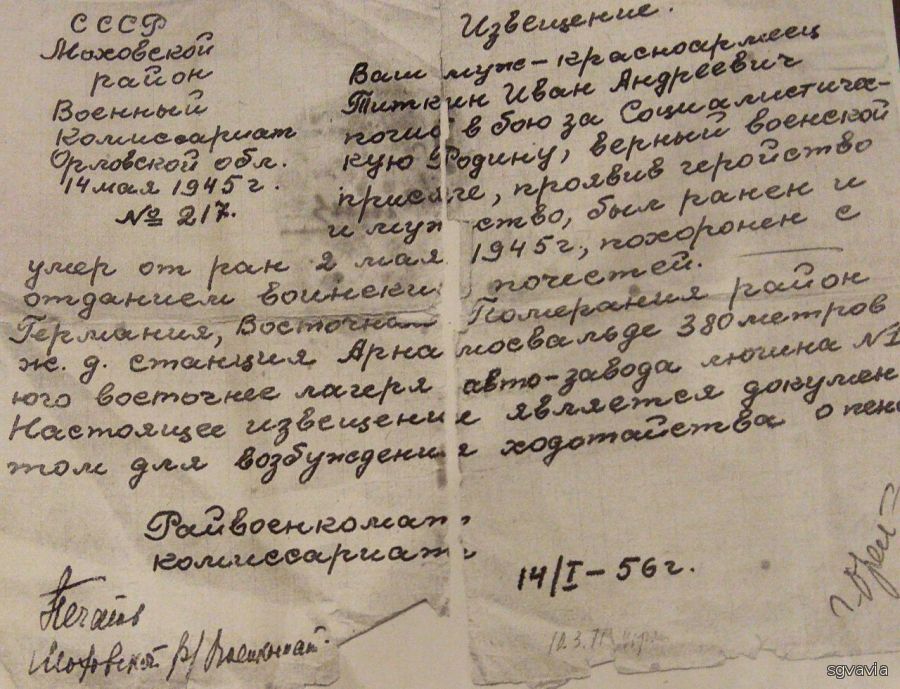 СССР
Моховской
район
Военный
Комиссариат
Орловской обл.
14 мая 1945 г.
№ 217.
Извещение.
Ваш муж-красноармеец
Титкин Иван Андреевич
погиб в бою за Социалистиче-
кую Родину, верный военской
присяге, проявив геройство
и мужство, был ранен и
умер от ран 2 мая 1945 г., похоронен с
отданием воински почестей.
Германия, Восточная Померания район
ж. д. станция Арна мосвальде 380 метров
юго восточнее лагеря авто-завода люгина №1
Настоящее извещение является докумен
том для возбуждения ходотайства о пенс
Райвоенкомат
комиссариат
14/I-56 г.
Печать
Моховской Р/Военкомат.
г. Орел
10.3.71
sgvavia